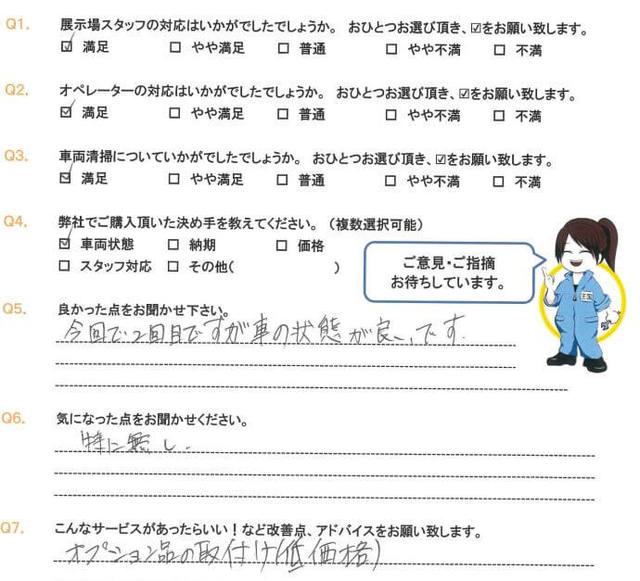 Q1. 展示場スタッフの対応はいかがでしたでしょうか。 おひとつお選び頂き、☑をお願い致します。
☑ 満足 □ やや満足 □ 普通 □ やや不満 □ 不満
Q2. オペレーターの対応はいかがでしたでしょうか。 おひとつお選び頂き、☑をお願い致します。
☑ 満足 □ やや満足 □ 普通 □ やや不満 □ 不満
Q3. 車両清掃についていかがでしたでしょうか。 おひとつお選び頂き、☑をお願い致します。
☑ 満足 □ やや満足 □ 普通 □ やや不満 □ 不満
Q4. 弊社でご購入頂いた決め手を教えてください。(複数選択可能)
☑ 車両状態 □ 納期 □ 価格
□ スタッフ対応 □ その他( )
ご意見・ご指摘
お待ちしています。
Q5. 良かった点をお聞かせ下さい。
今回で2回目ですが車の状態が良いです.
Q6. 気になった点をお聞かせください。
特に無し.
Q7. こんなサービスがあったらいい!など改善点、アドバイスをお願い致します。
オプション品の取付け(低価格)